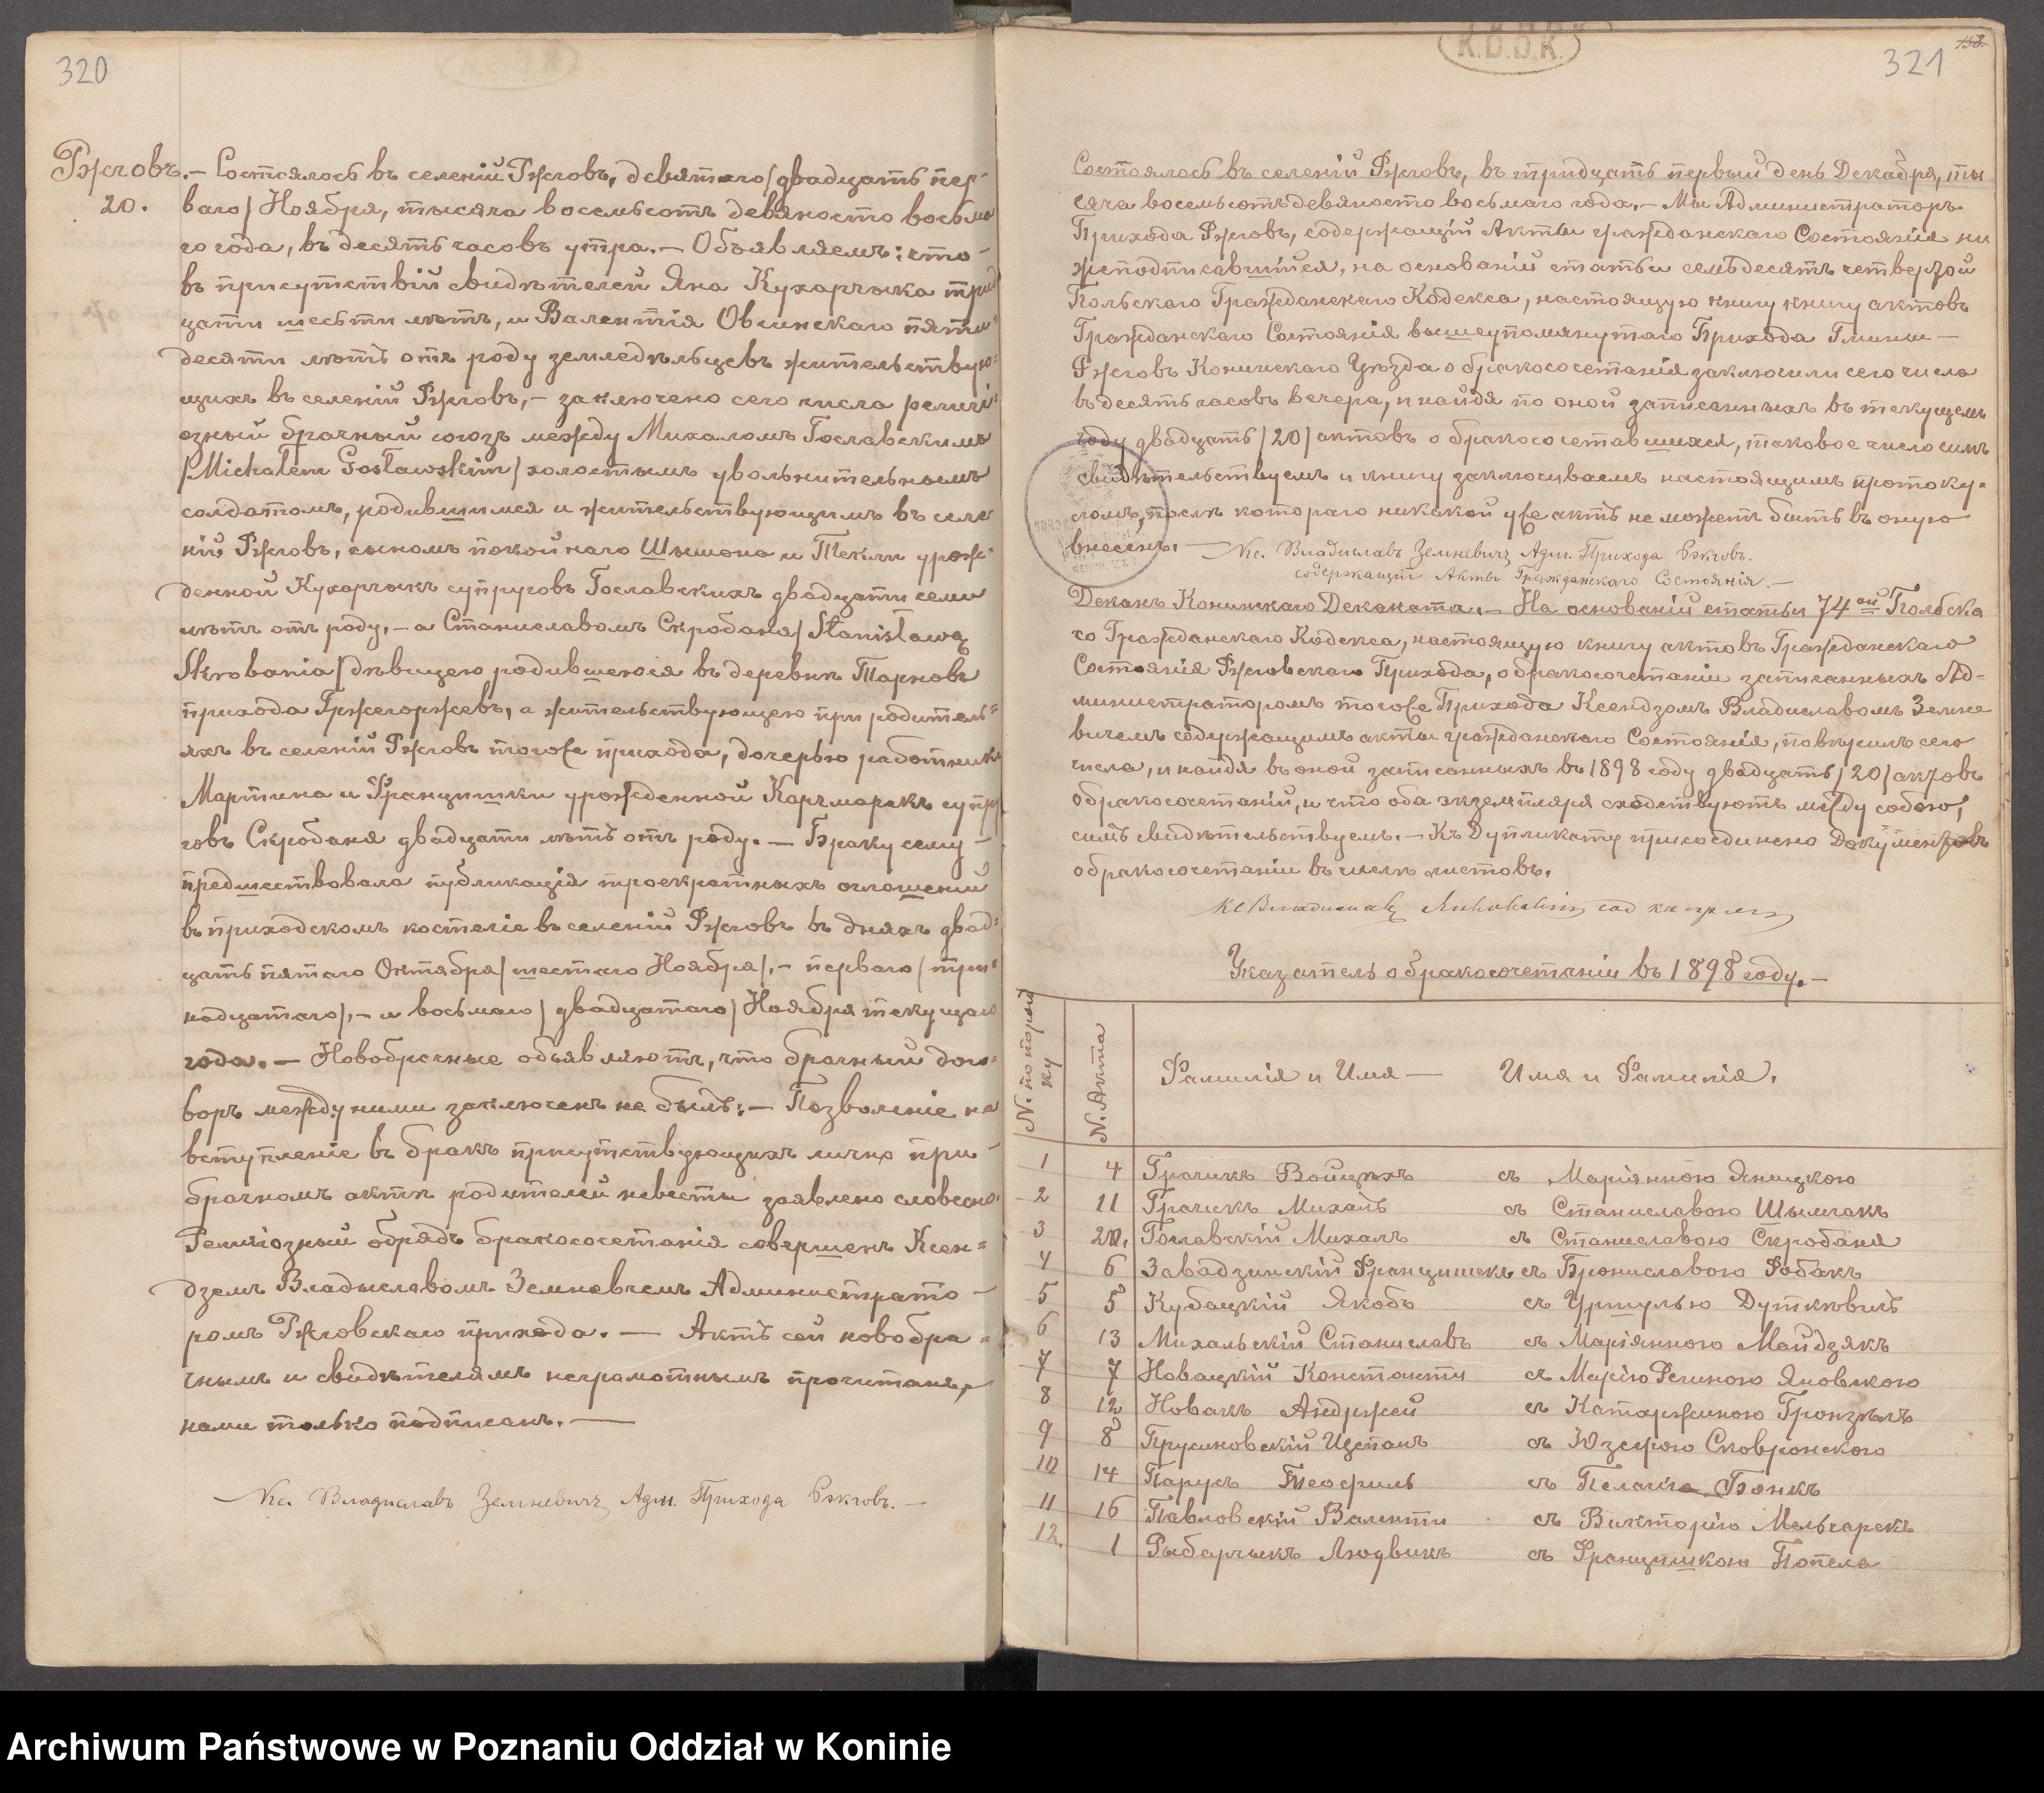 320
Ржговъ.
20.
— Состоялось въ селеніи Ржговъ, девятаго/двадцать пер-
ваго/ Ноября, тысяча восемьсотъ девяносто восьма
го года, въ десять часовъ утра. — Объявляемъ: что-
въ присутствій свидѣтелей Яна Кухарчыка трид
цати шести лѣтъ, и Валентія Овсинскаго пяти
десяти лѣтъ отъ роду земледѣльцевъ жительствую=
щихъ въ селеній Ржговъ, — заключено сего числа религі=
озный брачный союзъ между Михаломъ Гославскимъ
/Michałem Gosławskim/ холостымъ увольнительнымъ
солдатомъ, родившимся и жительствующимъ въ селе
ній Ржговъ, сыномъ покойнаго Шымона и Текли урож
денной Кухарчыкъ супруговъ Гославскихъ двадцати семи
лѣтъ отъ роду, — а Станиславомъ Скробаня/ Stanisławą
Skrobania/ дѣвицею родившеюся въ деревнѣ Тарновъ
прихода Гржегоржевъ, а жительствующею при родитель=
яхъ въ селеній Ржговъ тогоже прихода, дочерью работника
Мартина и Францишки урожденной Карчмарекъ супру
говъ Скробаня двадцати лѣтъ отъ роду. — Браку сему —
предшествовала публикація троекратныхъ оглошеній
въ приходскомъ костеліе въ селеній Ржговъ въ дняхъ двад=
цать пятаго Октября/ шестаго Ноября/, — перваго/ три=
надцатаго/, — и восьмаго/ двадцатаго/ Ноября текущаго
года. — Новобрачные объявляютъ, что брачный дого=
воръ между ними заключенъ не былъ: — Позволеніе на
вступленіе въ бракъ присутствующихъ лично при-
брачномъ актѣ родителей невесты заявлено словесно.
Религіозный обрядъ бракосочетанія совершенъ Ксен=
дземъ Владыславомъ Земневичемъ Администрато —
ромъ Ржговскаго прихода. — Актъ сей новобра=
чнымъ и свидѣтелямъ неграмотнымъ прочитанъ,
нами только подписанъ. —
Кс. Владиславъ Земневичъ Адм. Прихода Ржговъ. —
K.B.D.K.
321
153.
Состоялось въ селеній Ржговъ, въ тридцать первый день Декабря, ты
сяча восемьсотъ девяносто восьмаго года. — Мы Администраторъ
Прихода Ржговъ, содержащій Акты гражданскаго Состоянія ни
жеподписавшійся, на основаній статьи семьдесятъ четвертой
Польскаго Гражданскаго Кодекса, настоящую книгу книгу актовъ
Гражданскаго Состоянія вышеупомянутаго Прихода Гмины —
Ржговъ Конинскаго Уѣзда о бракосочетанія заключили сего числа
въ десять часовъ вечера, и найдя по оной записанныхъ въ текущемъ
году двадцать/20/ актовъ о бракосочетавшихся, таковое число симъ
свидѣтельствуемъ и книгу заключиваемъ настоящимъ протоку=
ломъ, послѣ котораго никакой уже актъ не можетъ быть въ оную
внесенъ. — Кс. Владиславъ Земневичъ Адм. Прихода Ржговъ.
содержащій Акты Гражданскаго Состоянія. —
Деканъ Конинскаго Деканата. — На основаній статьи 74ой Польска
го Гражданскаго Кодекса, настоящую книгу актовъ Гражданскаго
Состоянія Ржговскаго Прихода, о бракосочетаніи записанныхъ Ад=
министраторомъ тогоже Прихода Ксендзомъ Владиславомъ Земне
вичемъ содержащимъ акты гражданскаго Состоянія, повѣрилъ сего
числа, и найдя въ оной записанныхъ въ 1898 году двадцать/20/ актовъ
о бракосочетаній, и что оба экземпляра сходствуютъ между собою,
симъ свидѣтельствуемъ. — Къ Дупликату присоединено Документовъ
о бракосочетаніи въ числѣ листовъ.
Кс Владиславъ
Указатель о бракосочетаніи въ 1898 году. —
N. по поряд
ку
N. Акта
Фамилія и Имя — Имя и Фамилія.
1 4 Грачикъ Войцѣхъ съ Маріянною Яницкою
2 11 Грачикъ Михалъ съ Станиславою Шымчакъ
3 20. Гославскій Михалъ съ Станиславою Скробаня
4 6 Завадзинскій Францишекъ съ Брониславою Робакъ
5 5 Кубацкій Якобъ съ Уршулью Дуткевичъ
6 13 Михальскій Станиславъ съ Маріянною Майдзякъ
7 7 Новацкій Константи съ Марію Региною Яновскою
8 12 Новакъ Андржей съ Катаржиною Гронзѣлъ
9 8 Прусиновскій Щепанъ съ Юзефою Сковронскою
10 14 Парусъ Теофиль съ Пелагіа Бонкъ
11 16 Павловскій Валенти съ Викторію Мельгарекъ
12. 1 Рыбарчыкъ Людвикъ съ Францишкою Попела
Archiwum Państwowe w Poznaniu Oddział w Koninie